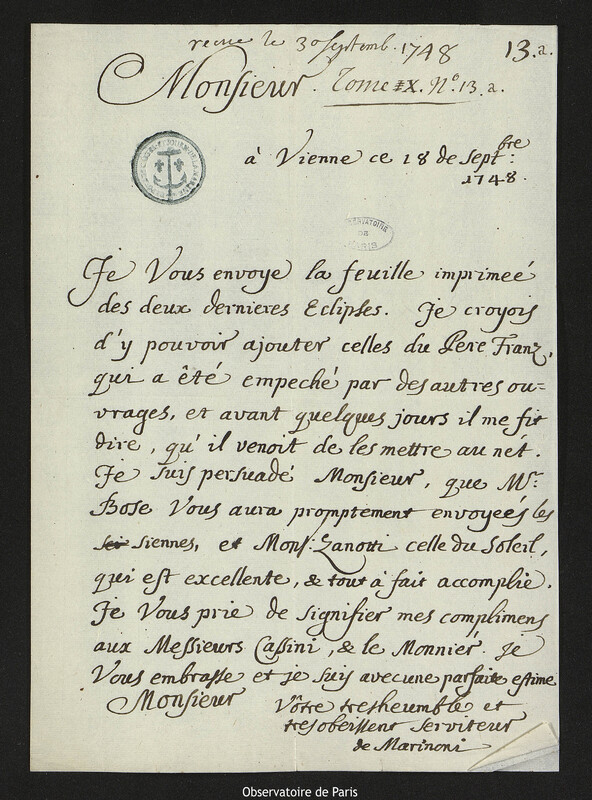 recue le 30 Septemb. 1748
13.a.
Monsieur. Tome IX. N.º 13.a.
à Vienne ce 18 de Septbre:
1748.
OBSERVATOIRE
DE
PARIS
Je Vous envoye la feuille imprimeé
des deux dernieres Eclipses. Je croyois
d'y pouvoir ajouter celles du Pere Franz,
qui a êté empeché par des autres ou=
vrages, et avant quelques jours il me fit
dire, qu'il venoit de les mettre au nét.
Je suis persuadé Monsieur, que Mr.
Bose Vous aura promptement envoyeés les
siennes, et Mons: Zanotti celle du Soleil,
qui est excellente, & tout à fait accomplie.
Je Vous prie de signifier mes complimens
aux Messieurs Cassini, & le Monnier. Je
Vous embrasse et je suis avec une parfaite estime
Monsieur Vôtre tresheumble et
tresobeissent serviteur
de Marinoni
Observatoire de Paris